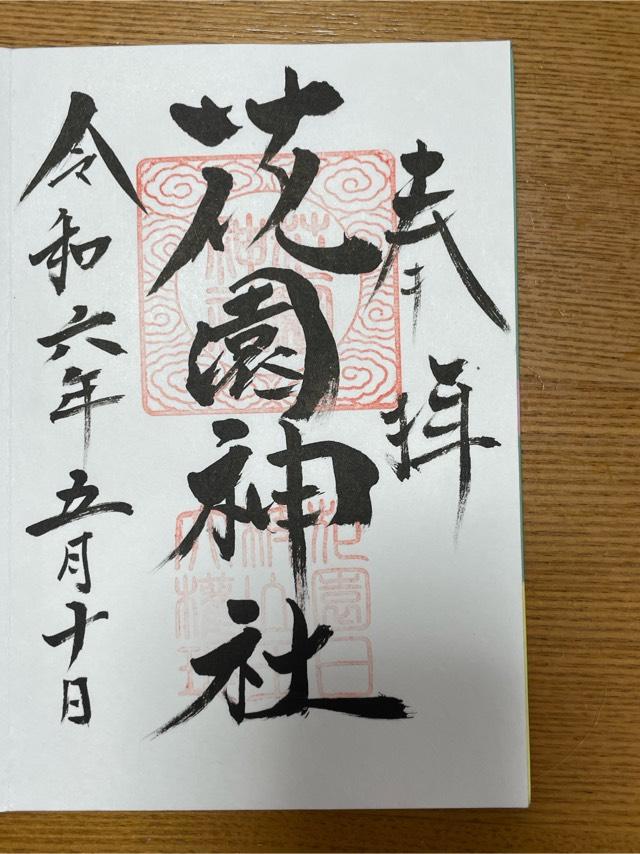 奉拝
花園神社
令和六年五月十日